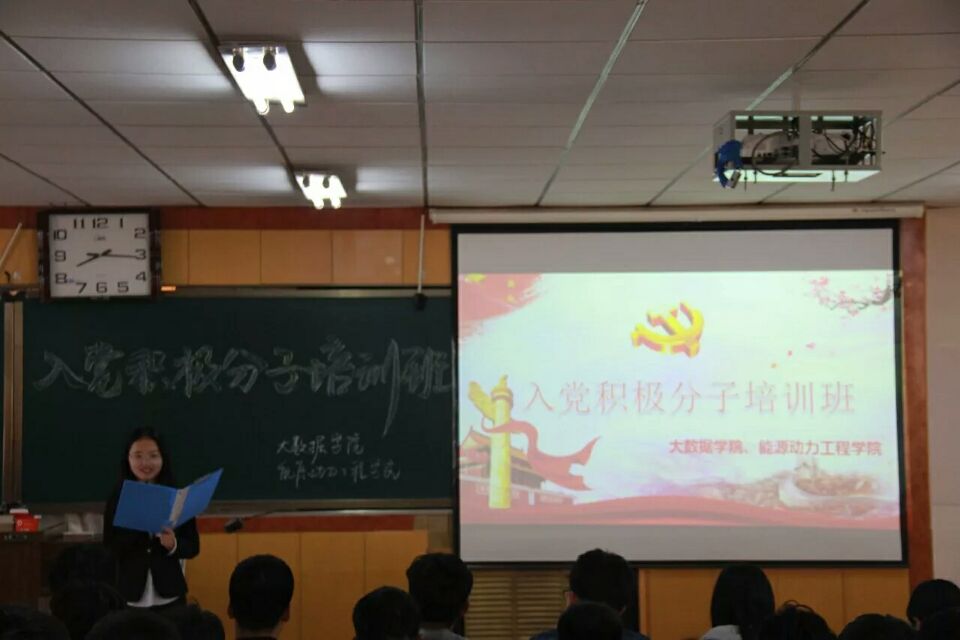 11 12 1
10 2
9 3
8 4
7 6 5
入党积极分子培训班
大数据学院
能源动力工程学院
入党积极分子培训班
大数据学院、能源动力工程学院